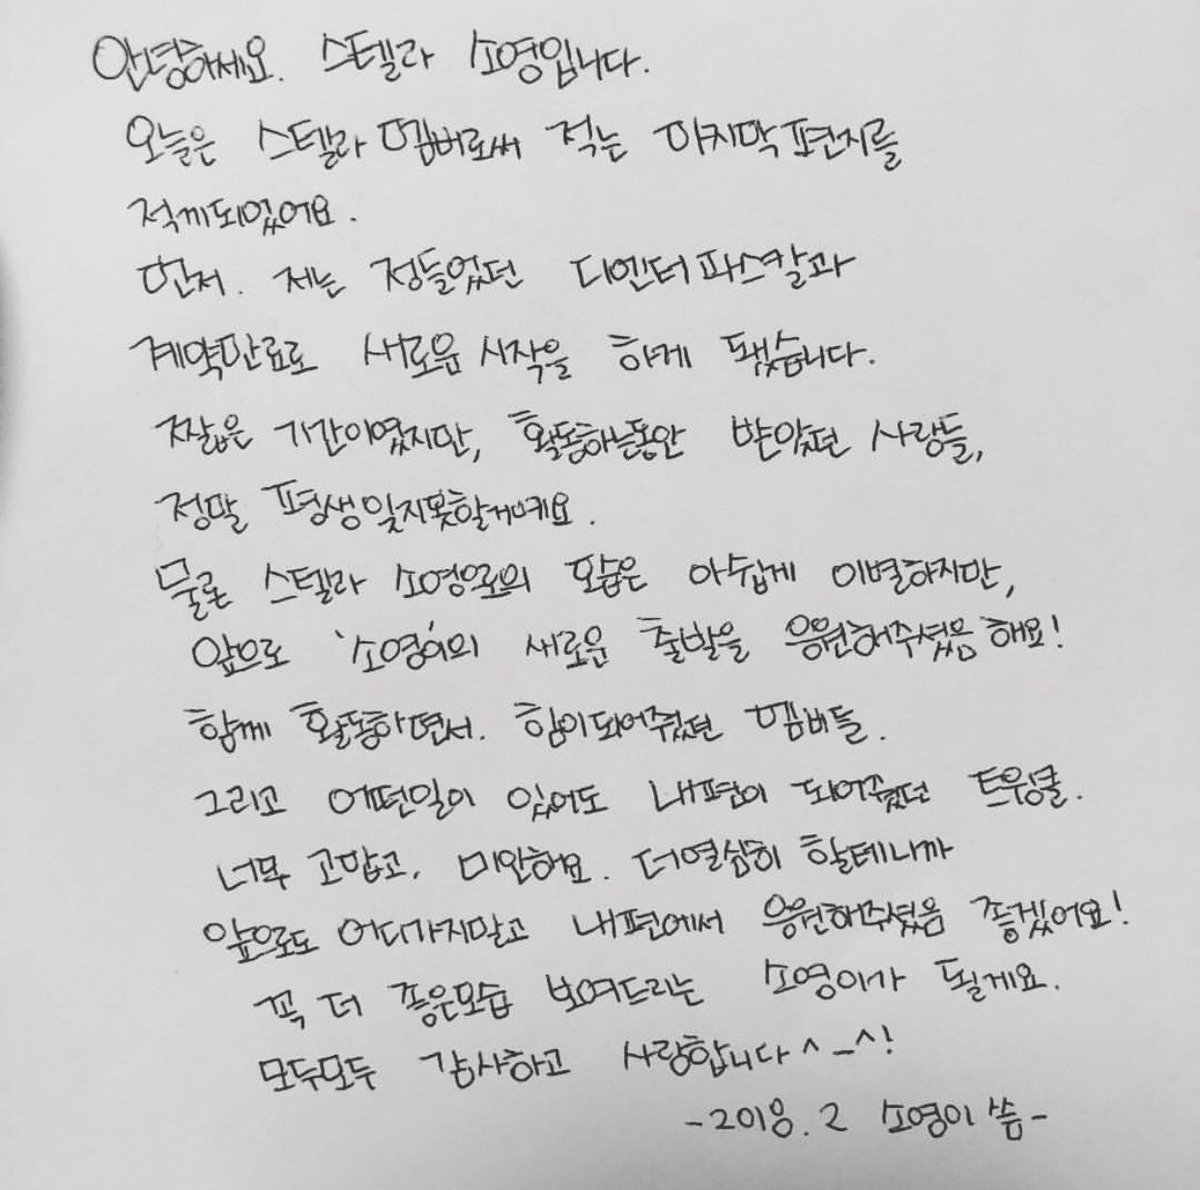 안녕하세요. 스텔라 소영입니다.
오늘은 스텔라 멤버로써 적는 마지막 편지를
적게되었어요.
먼저. 저는 정들었던 디엔터파스칼과
계약만료로 새로운 시작을 하게 됐습니다.
짧은 기간이였지만, 활동하는동안 받았던 사랑들,
정말 평생잊지못할게예요.
물론 스텔라 소영으로의 모습은 아쉽게 이별하지만,
앞으로 '소영'이의 새로운 출발을 응원해주셨음해요!
함께 활동하면서. 힘이되어줬던 멤버들.
그리고 어떤일이 있어도 내편이 되어줬던 트윙클.
너무 고맙고. 미안해요. 더열심히 할테니까
앞으로도 어디가지말고 내편에서 응원해주셨음 좋겠어요!
꼭 더 좋은모습 보여드리는 소영이가 될게요.
모두모두 감사하고 사랑합니다^_^!
-2018. 2 소영이 씀-